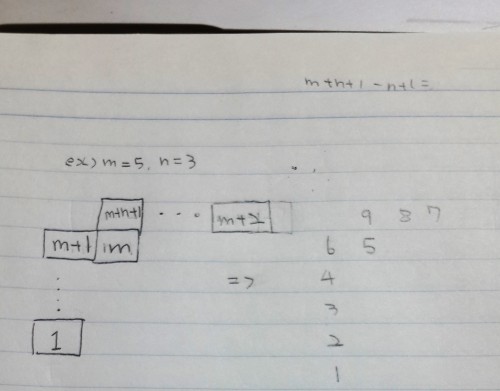 m+n+1 -n+1=
ex) m=5, n=3
m+n+1 ... m+x 9 8 7
m+1 m 6 5
=> 4
3
1 2
1